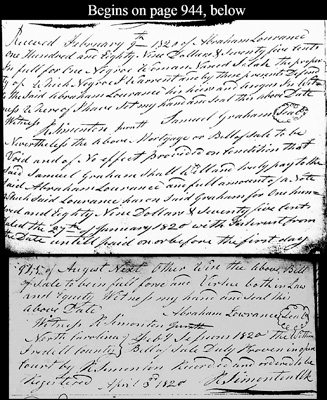 Begins on page 944, below
Received February 9th 1820 of Abraham Lowrance
One Hundred and Eighty Nine Dollars & Seventy five Cents
in full for One Negro & Named Isaac the proper
ty of Which Negro I Warrant and by these presents Defend
the Said Abraham Lowrance his heirs and
I have Set my hand and Seal the above Date
Witness
R. Simonton Jurat Samuel Graham (Seal)
Nevertheless the above Mortgage or Bill of Sale to be
Void and of No effect provided on Condition that
Said Samuel Graham Shall Well and truly pay to the
Said Abraham Lowrance in full amount of a Note
Which Said Lowrance has on Said Graham for One hun
dred and Eighty Nine Dollars & Seventy five Cents
Dated the 27th of January 1820 with Interest from
the Date untill paid on or before the first day
945 of August Next Other Wise the above Bill
of Sale to be in full force and Virtue both in Law
and Equity Witness my hand and Seal the
above Date
Abraham Lowrance (Seal)
Witness R. Simonton Jurat
North Carolina Feby Session 1820 the within
Iredell County Bill of Sale Duly proven in open
Court by R. Simonton Recorded and ordered to be
Registered April 3d 1820 R. Simonton Clk